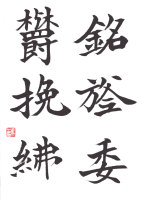 銘旌委
欝挽紼